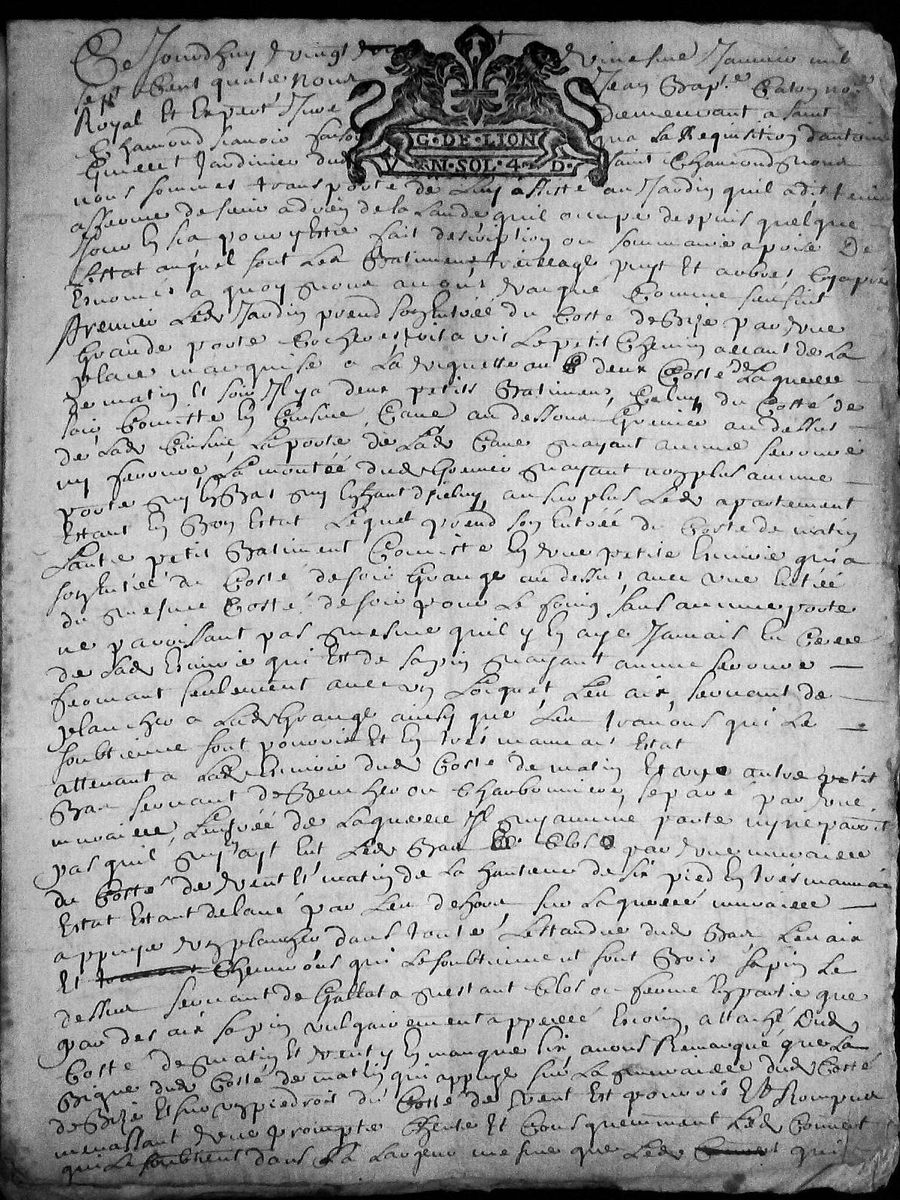 Ce Jourdhuy vingt deuxiesme Janvier mil
sept Cent quatre Nous Jean Bap.te
Royal Et Expert Jure demeurant a saint
Chamond la Requisition dantoine
Jardinier du saint Chamond nous
G·DE·LION
N·SOL·4·D·
nous sommes transporté de luy assisté au Jardin quil a dit tenir
afferme de sieur adrien de la Lande quil occupe despuis quelque
Jour En ça pour y Estre fait description ou sommaire aprise De
Lestat auquel sont Led. Batiment treillage puys Et arbres Cy aprés
Enoncés a quoy nous avons vacque Comme sensuit
Premier Led. Jardin prend son Entrée du Costé de Bize par Une
Grande porte Cochere vis a vis Le petit Chemin allant de La
place marquise a La au deux Costé de Laquelle
De matin Et soir Il y a deux petits Batiments, Celuy du Costé de
soir Consiste En Cuisine Cave au dessous Grenier au dessus
de Lad. Cuisine, La porte de Lad. Cave nayant aucune serrure
ny ferrure, La montée dud. Grenier nayant non plus aucune
porte ny En Bas ny En haut dicelluy, au surplus Led. apartement
Estant En Bon Estat Lequel prend son Entrée du Costé de matin
Lautre petit Batiment Consiste En Une petite Ecurie qui a
son Entrée du Costé de soir Grange au dessus avec une Entrée
du mesme Costé de soir pour Le foing sans aucune porte
ne paroissant pas mesme quil y En aye Jamais Eu Celle
de Lad. Ecurie qui Est de sapin nayant aucune serrure
fermant seulement avec un Locquet, Les aix servant de
plancher a Lad. Grange ainsy que Les travons qui Le
soubtienne sont pourris Et En tres mauvais Estat
attenant a Lad. Ecurie dud. Costé de matin Et autre petit
Bas servant de Bucher ou Charbonniere, separé par Une
muraille, Lentrée de Laquelle Il ny a aucune porte ny ne paroit
pas quil ny ayt Eut Led. Bas Clos par Une muraille
du Costé de Vent Et matin de La hauteur de six pied En tres mauvais
Estat Estant delavé par Leu dehors sur Laquelle muraille
appuye Un plancher dans toute Lestandue dud. Bas Les aix
Et Chevrons qui Le soubtiennent sont Bois sapin Le
dessus servant de Gallata nestant Clos ou fermé En partie que
par des aix sapin vulgairement appellé Ecoin, attaché Dud.
Costé de matin Et Vent y En manque six avons Remarqué que La
Bigue dud. Costé de matin qui appuye sur La muraille dud. Costé
de Bize Et sur un piedroit du Costé de Vent Est pourrie Et Rompue
menassant Une prompte Cheute Et Consquemment Led. Couvert
qui Le soubtient dans La Largeur mesme que Led. qui